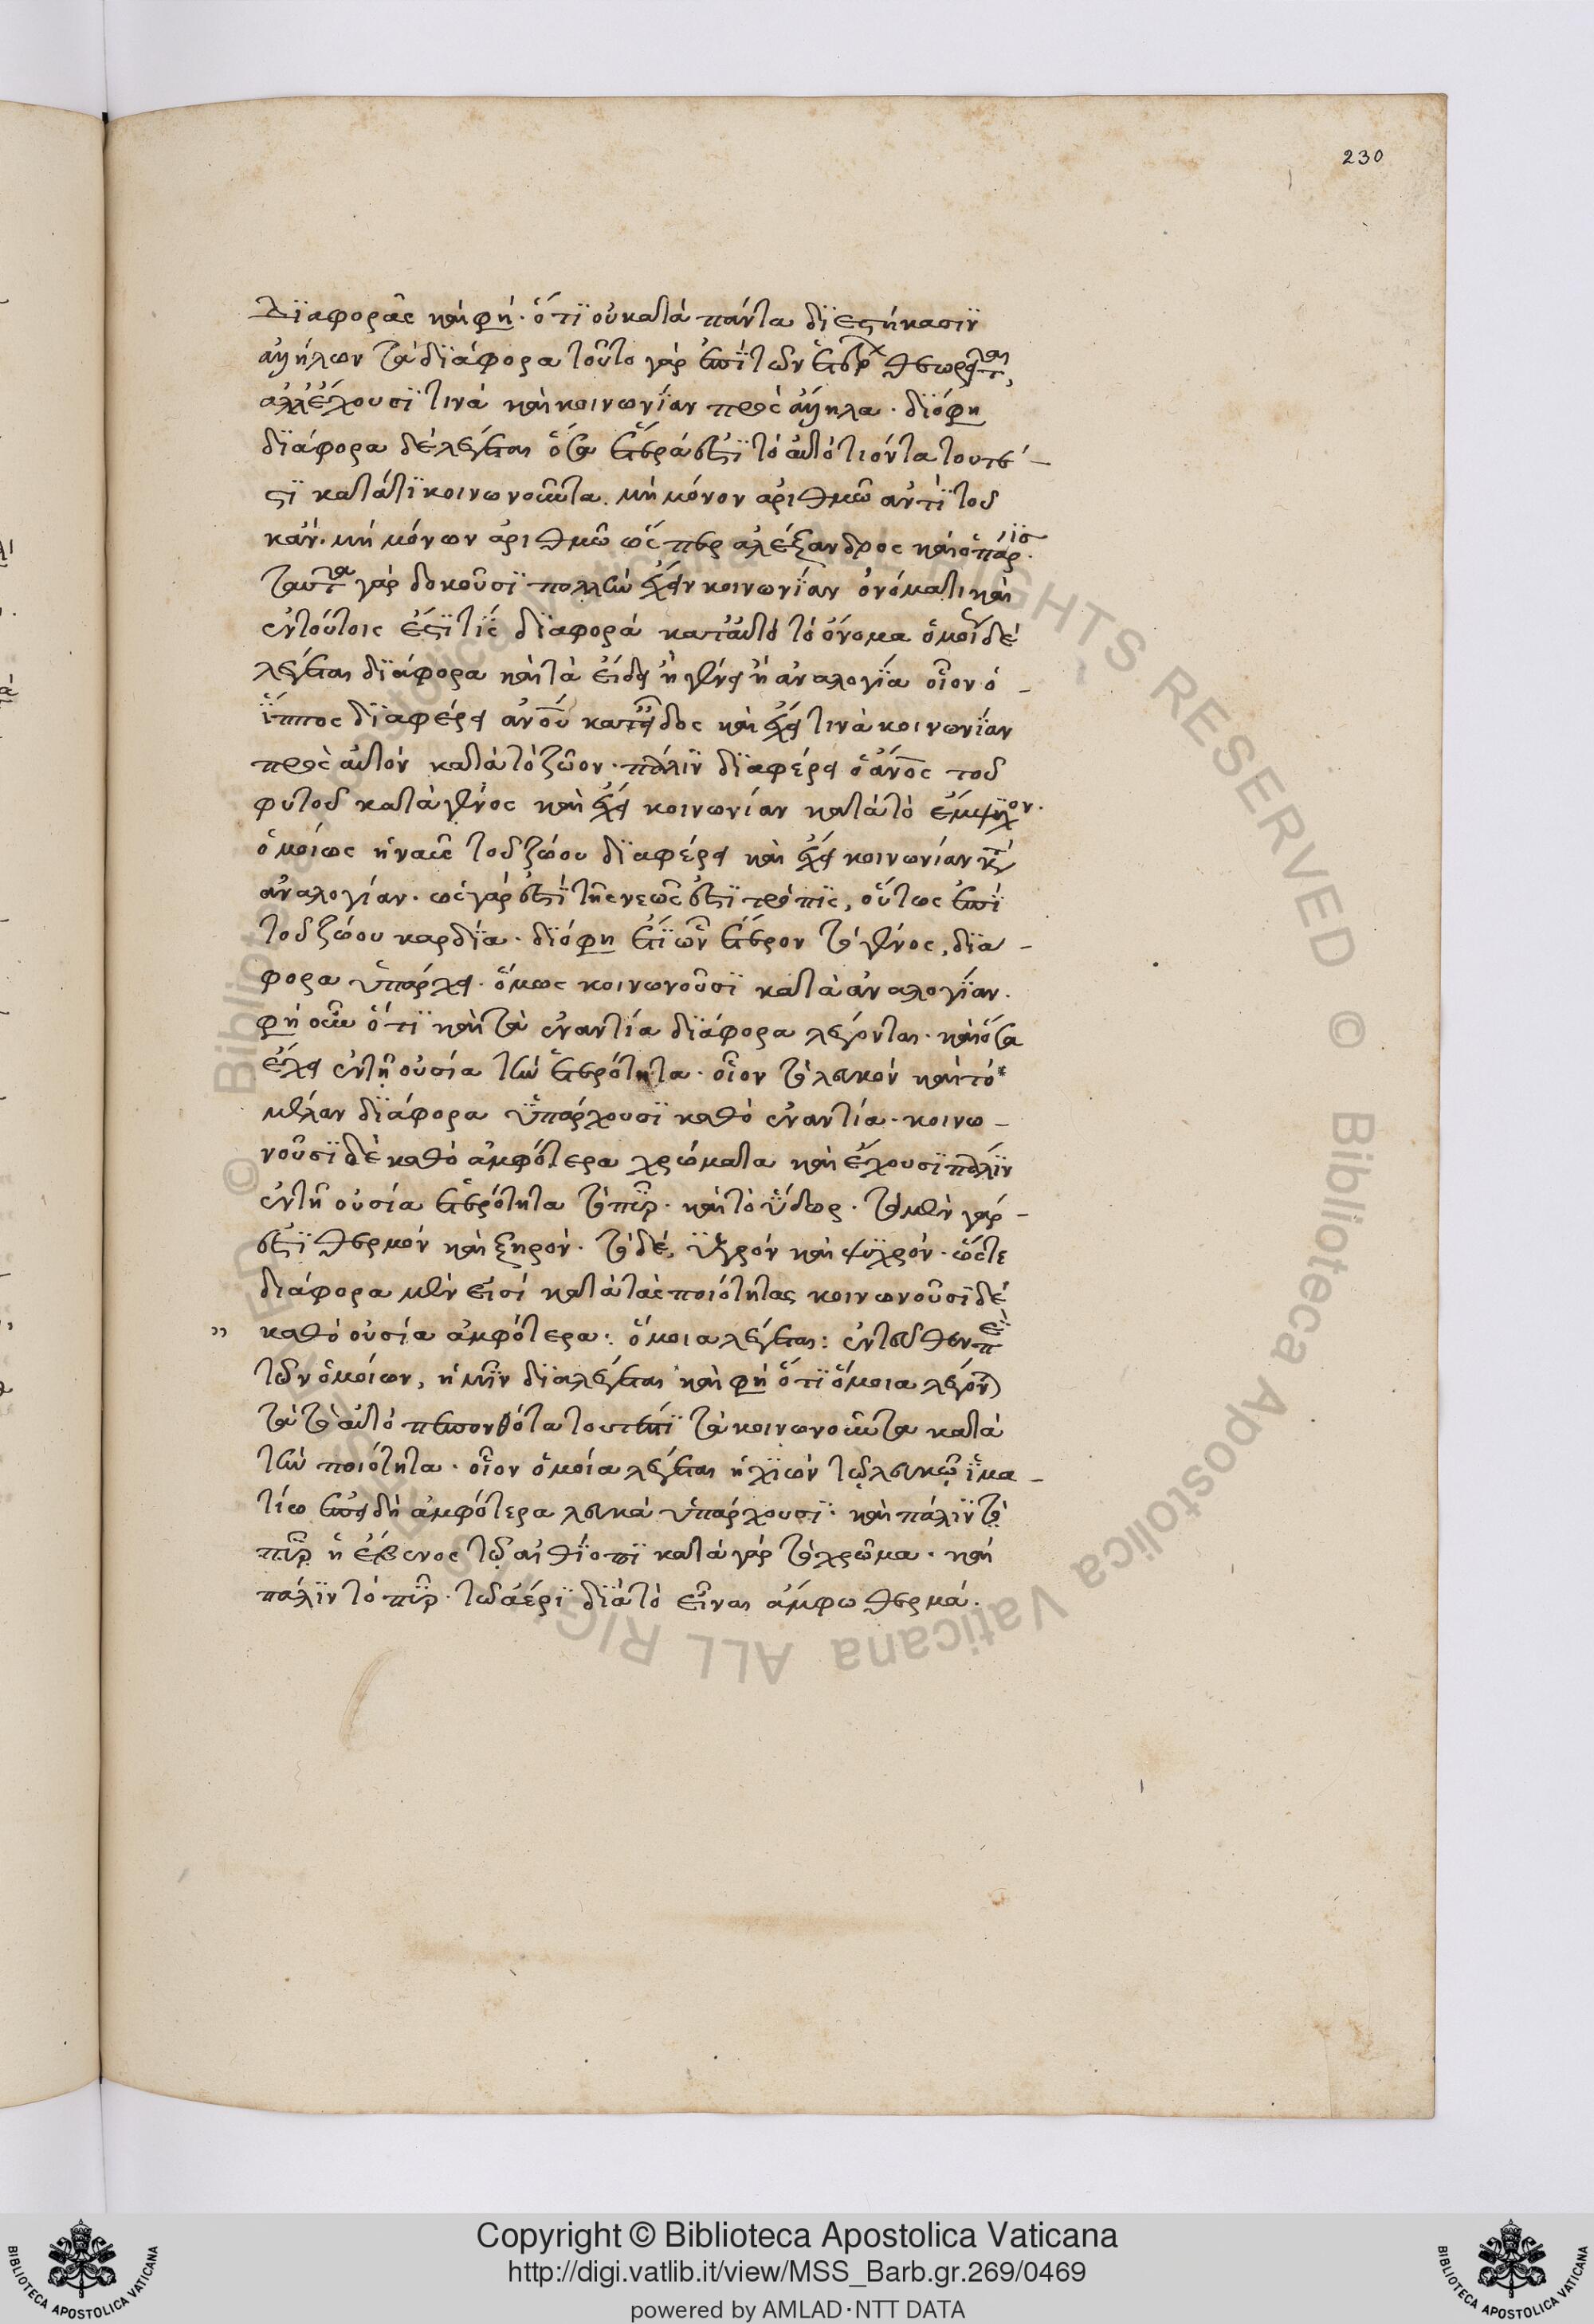 230
διαφορᾶς καὶ φη· ὅτι οὐ κατὰ πάντα διεστήκασιν
ἀλλήλων τὰ διάφορα τοῦτο γὰρ ἐπὶ τῶν ἑτέρ θεωρεῖται,
ἀλλ' ἔχουσι τινὰ καὶ κοινωνίαν πρὸς ἄλληλα · διό φη
διάφορα δὲ λέγεται ὅσα ἕτερά ἐστι τὸ αὐτό τι ὄντα τουτέ-
στι κατά τι κοινωνοῦντα. μὴ μόνον ἀριθμῶ ἀντὶ τοῦ
κἄν· μὴ μόνων ἀριθμῶ ὥσπερ ἀλέξανδρος καὶ ὁ πάρις.
ταῦτα γὰρ δοκοῦσι πολλὴν ἔχειν κοινωνίαν ὀνόματι καὶ
ἐν τούτοις ἔστι τίς διαφορά κατ' αὐτὸ τὸ ὄνομα ὁμοῖ δὲ
λέγεται διάφορα καὶ τὰ εἴδει ἢ γένει ἢ ἀναλογία οἷον ὁ -
ἵππος διαφέρει ἀνου κατ' εἶδος καὶ ἔχει τινὰ κοινωνίαν
πρὸς αὐτὸν κατὰ τὸ ζῶον · πάλιν διαφέρει ὁ ἄνος τοῦ
φυτοῦ κατὰ γένος καὶ ἔχει κοινωνίαν κατὰ τὸ ἔμψυχον.
ὁμοίως ἡ ναῦς τοῦ ζώου διαφέρει καὶ ἔχει κοινωνίαν κατ
ἀναλογίαν · ὡς γάρ ἐστι τῆς νεώς ἐστι τρόπις, οὕτως ἐπὶ
τοῦ ζώου καρδία · διό φη ἔτι ὧν ἕτερον τὸ γένος, διά-
φορα ὑπάρχει · ὅμως κοινωνοῦσι κατὰ ἀναλογίαν.
φη οὖν ὅτι καὶ τὰ ἐναντία διάφορα λέγονται · καὶ ὅσα
ἔχει ἐν τῆ οὐσία τὴν ἑτερότητα · οἷον τὸ λευκὸν καὶ τὸ
μέλαν διάφορα ὑπάρχουσι καθὸ ἐναντία · κοινω-
νοῦσι δὲ καθὸ ἀμφότερα χρώματα καὶ ἔχουσι πάλιν
ἐν τῆ οὐσία ἑτερότητα τὸ πῦρ · καὶ τὸ ὕδωρ · τὸ μὲν γάρ -
ἐστι θερμὸν καὶ ξηρόν · τὸ δέ, ὑγρὸν καὶ ψυχρόν · ὥστε
διάφορα μὲν εἰσὶ κατὰ τὰς ποιότητας κοινωνοῦσι δὲ
" καθὸ οὐσία ἀμφότερα : ὅμοια λέγεται : ἐντεῦθεν περὶ
τῶν ὁμοίων, ἡμῖν διαλέγεται καὶ φη ὅτι ὅμοια λέγονται
τὰ τὸ αὐτὸ πεπονθότα τουτέστι τὰ κοινωνοῦντα κατὰ
τὴν ποιότητα · οἷον ὁμοία λέγεται ἡ χιὼν τῷ λευκῷ ἱμα-
τίω ἐπειδὴ ἀμφότερα λευκὰ ὑπάρχουσι · καὶ πάλιν τὸ
πῦρ ἢ ἔβενος τῷ αἰθίοπι κατὰ γὰρ τὸ χρῶμα · καὶ
πάλιν τὸ πῦρ · τῶ ἀέρι διὰ τὸ εἶναι ἄμφω θερμά.
Copyright © Biblioteca Apostolica Vaticana
http://digi.vatlib.it/view/MSS_Barb.gr.269/0469
powered by AMLAD·NTT DATA